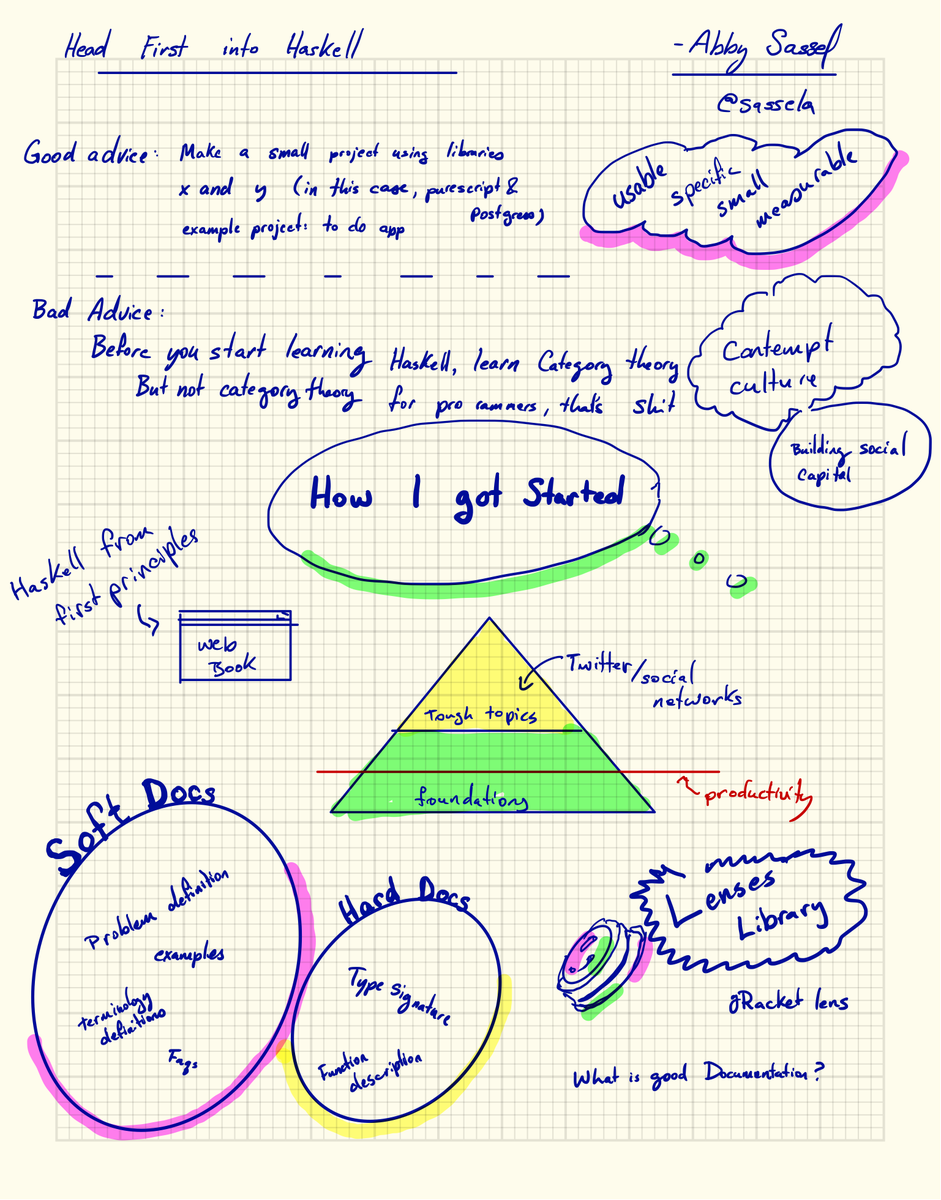 Head First into Haskell
- Abby Sassel
@sassela
Good advice: Make a small project using libraries
x and y (in this case, purescript &
Postgress)
example project: to do app
usable
specific
small
measurable
Bad Advice:
Before you start learning Haskell, learn Category theory
But not category theory for pro rammers, that's shit
Contempt
culture
Building social
Capital
How I got Started
Haskell from
first principles
Web
Book
Twitter/social
networks
Tough topics
foundations
productivity
Soft Docs
Problem definition
examples
terminology
definitions
Faqs
Hard Docs
Type signature
Function
description
Lenses
Library
Racket lens
What is good Documentation?